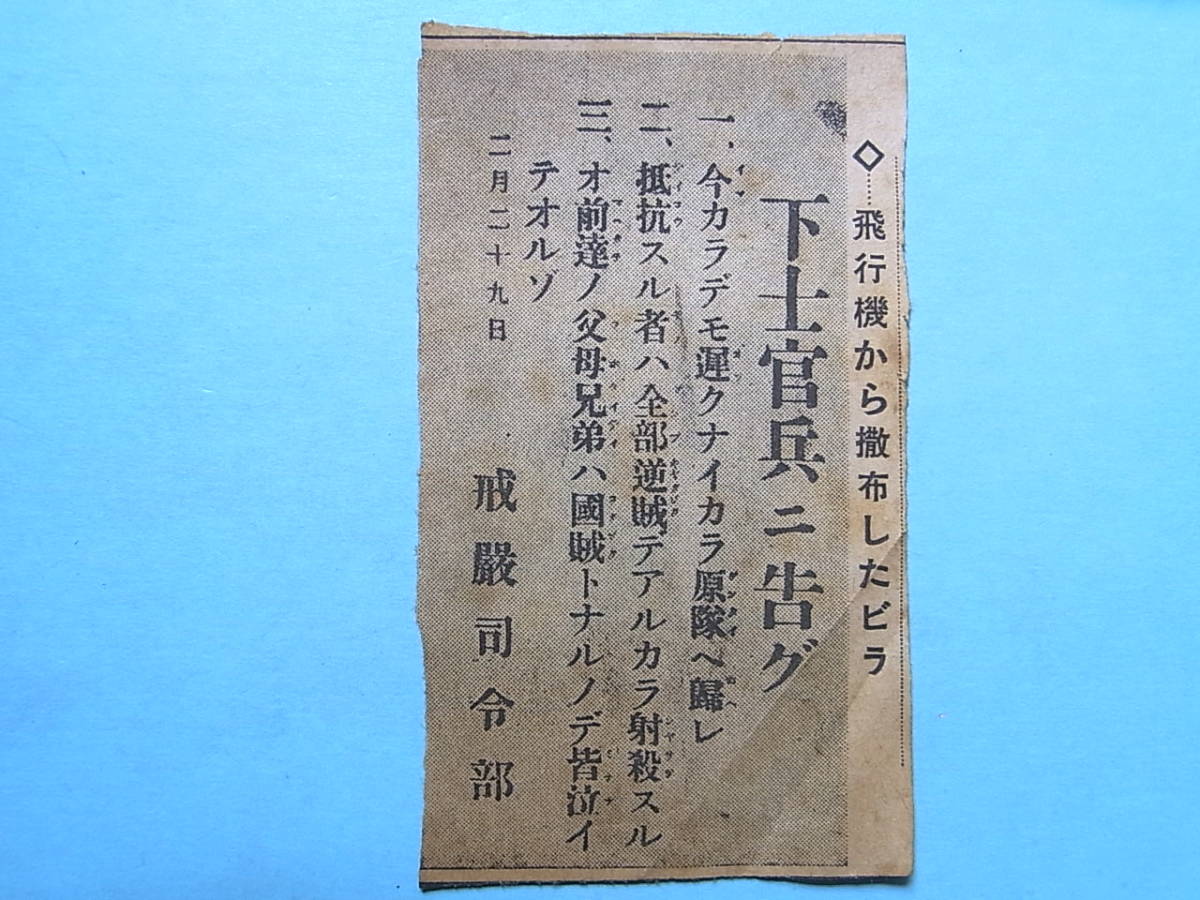 ◇……飛行機から撒布したビラ
下士官兵ニ告グ
一、今カラデモ遲クナイカラ原隊ヘ歸レ
二、抵抗スル者ハ全部逆賊デアルカラ射殺スル
三、オ前達ノ父母兄弟ハ國賊トナルノデ皆泣イ
テオルゾ
二月二十九日 戒嚴司令部